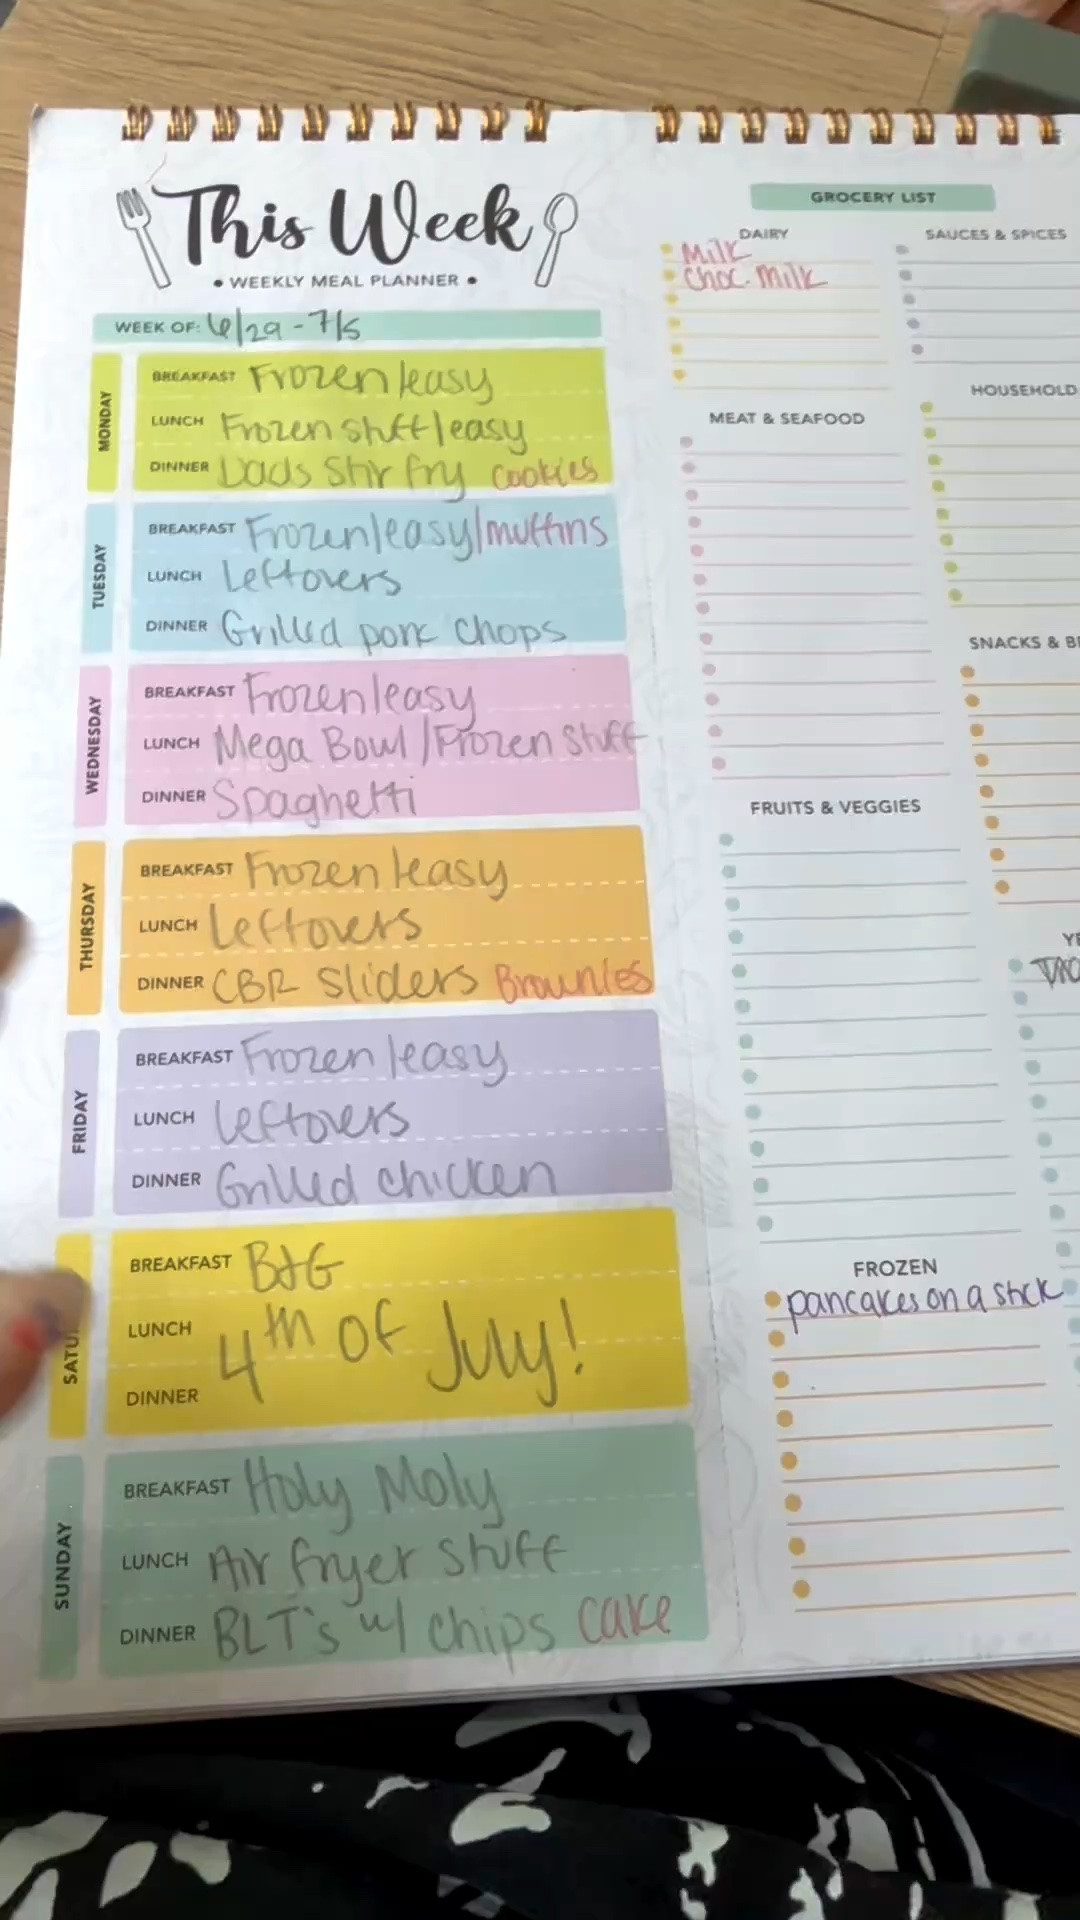 This Week
• WEEKLY MEAL PLANNER •
WEEK OF: 6/29 - 7/5
MONDAY
BREAKFAST Frozen/easy
LUNCH Frozen stuff/easy
DINNER Dads Stir fry cookies
TUESDAY
BREAKFAST Frozen/easy/muffins
LUNCH Leftovers
DINNER Grilled pork chops
WEDNESDAY
BREAKFAST Frozen/easy
LUNCH Mega Bowl/Frozen Stuff
DINNER Spaghetti
THURSDAY
BREAKFAST Frozen/easy
LUNCH Leftovers
DINNER CBR Sliders Brownies
FRIDAY
BREAKFAST Frozen/easy
LUNCH Leftovers
DINNER Grilled chicken
SATU
BREAKFAST
LUNCH 4th of July!
DINNER
SUNDAY
BREAKFAST Holy Moly
LUNCH Air fryer stuff
DINNER BLT's w/ chips cake
GROCERY LIST
DAIRY
Milk
Choc. Milk
MEAT & SEAFOOD
FRUITS & VEGGIES
FROZEN
pancakes on a stick
SAUCES & SPICES
HOUSEHOLD
SNACKS &